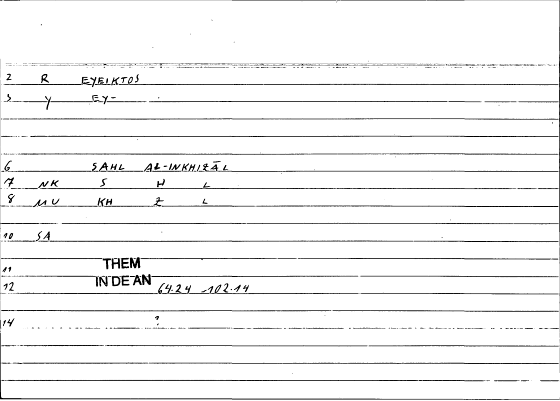 2 R EYEIKTOS
3 Y EY-
6 SAHL AL-INKHIẒĀL
7 NK S H L
8 MU KH Ẓ L
10 SA
11 THEM
IN DE AN
12 64.24 -102.14
14 ?